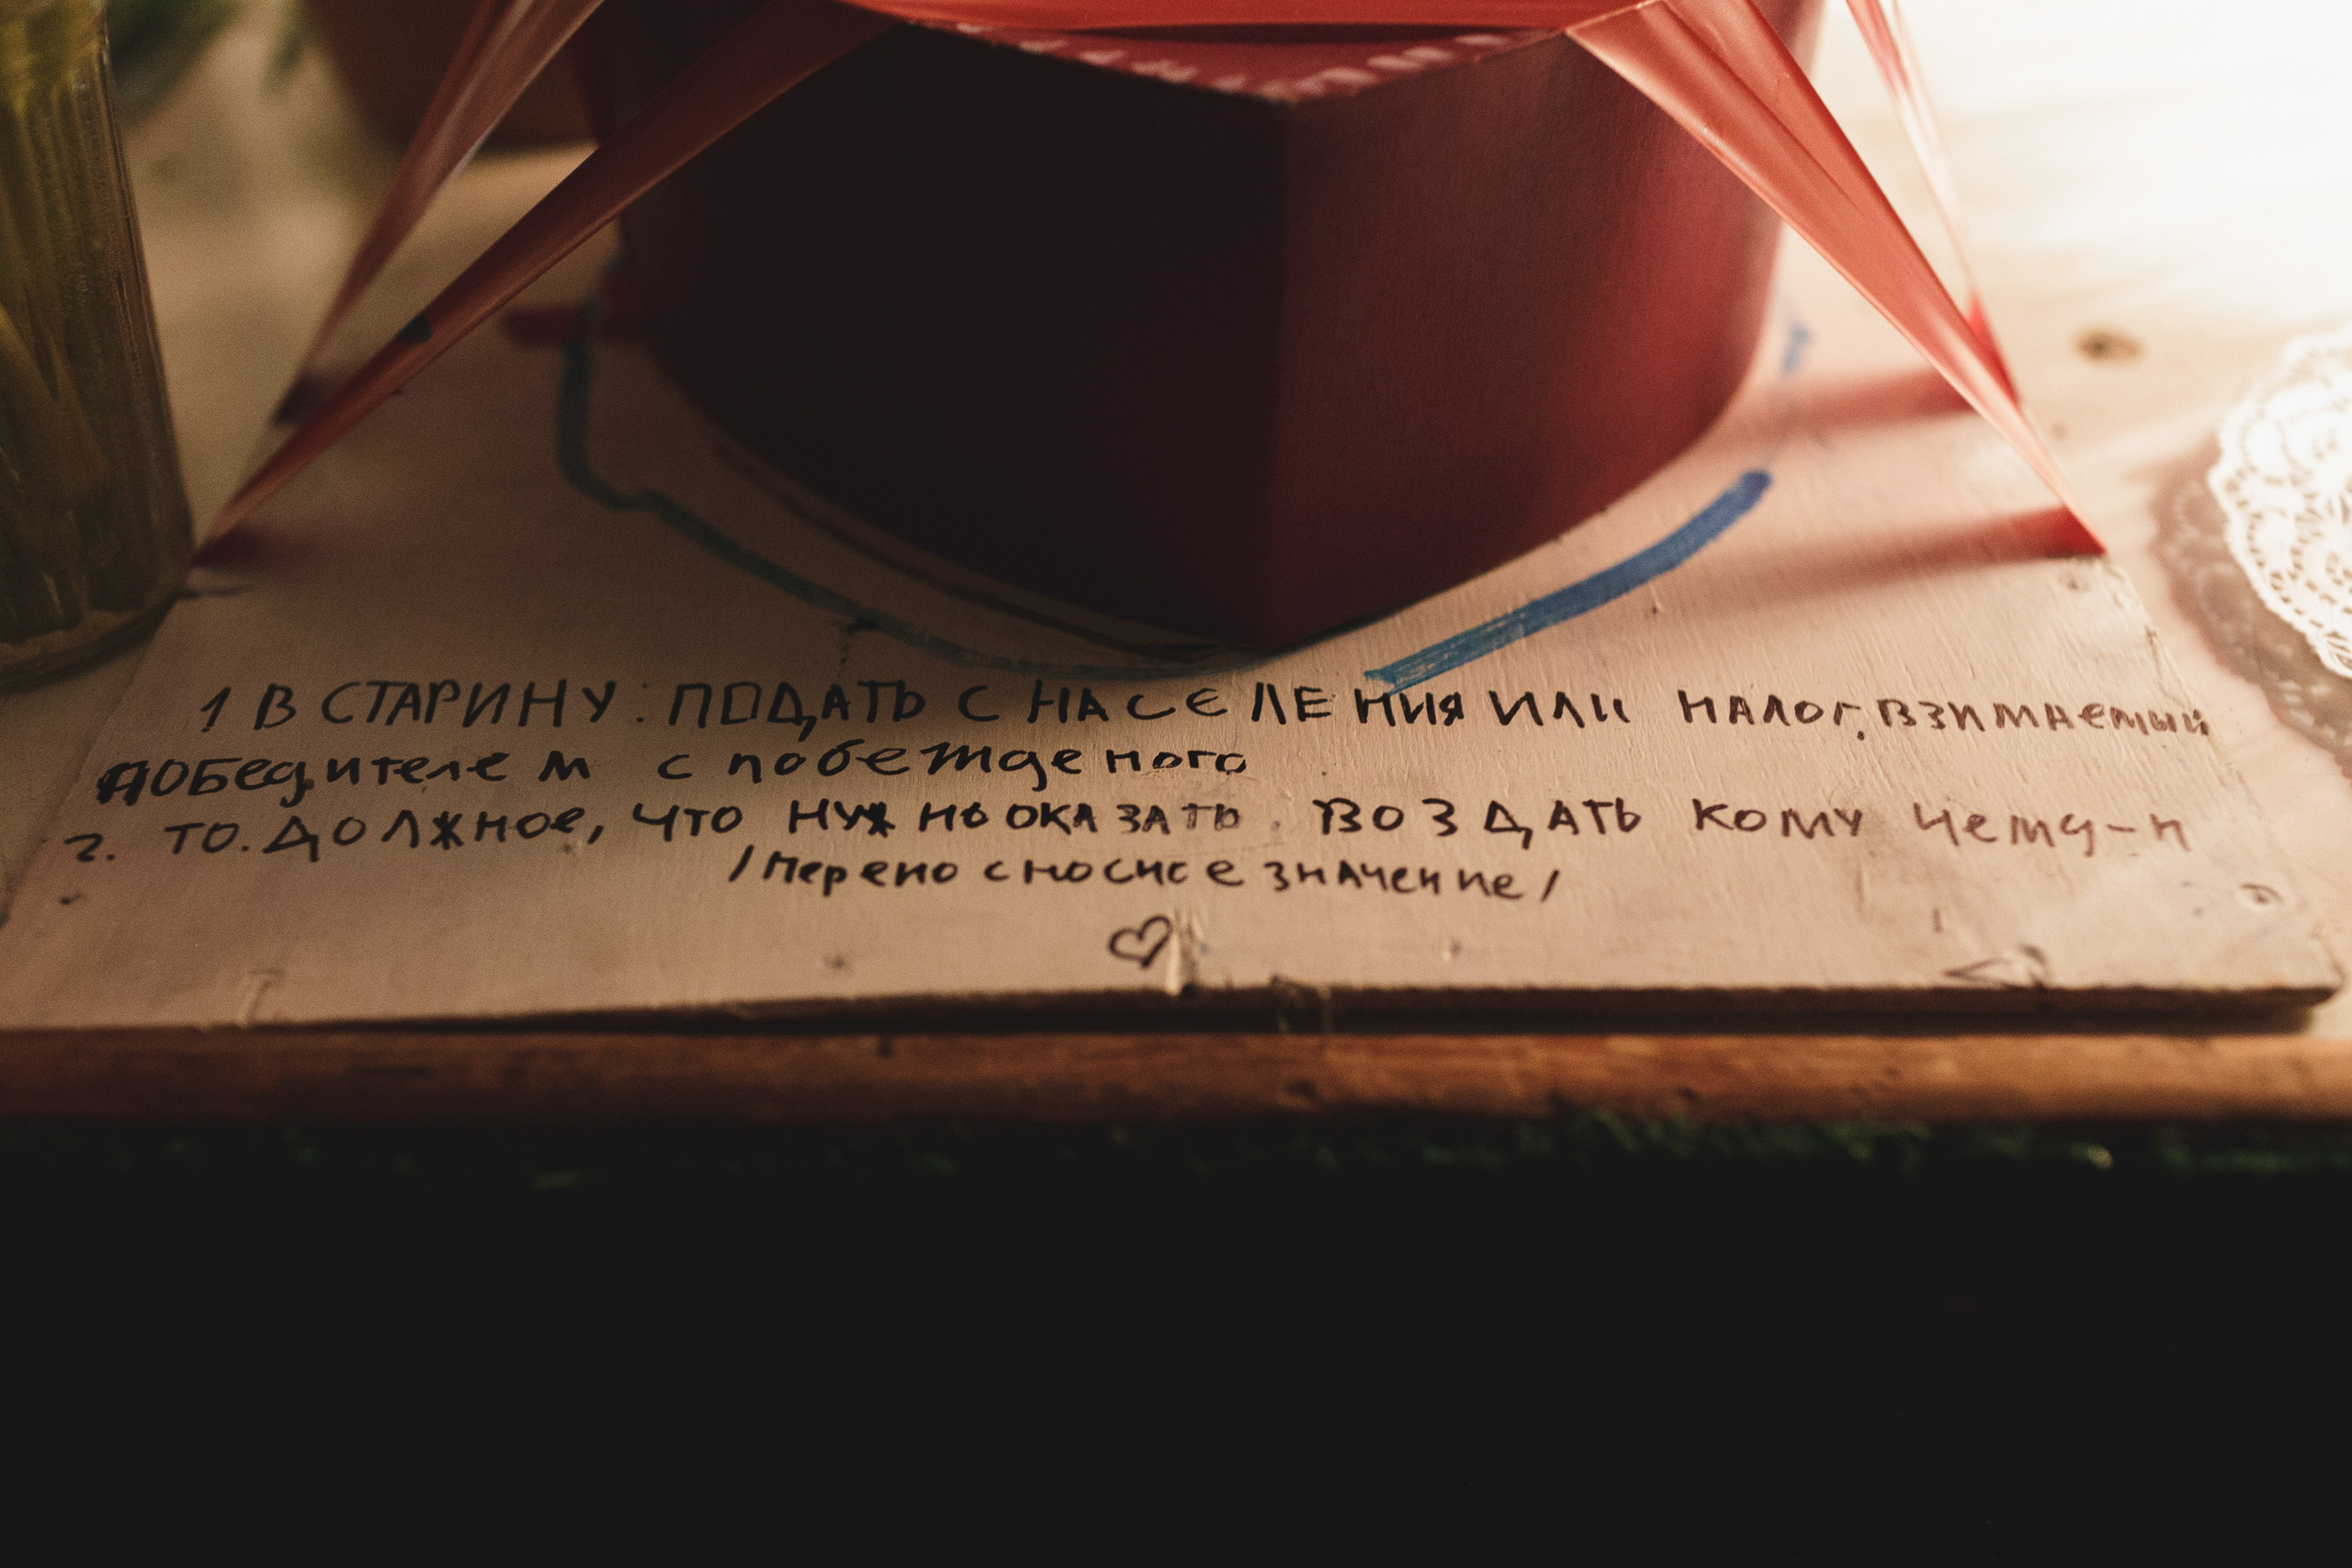 1 В СТАРИНУ: ПОДАТЬ С НАСЕЛЕНИЯ ИЛИ НАЛОГ, ВЗИМАЕМЫЙ
победителем с побежденого
2. ТО. ДОЛЖНОЕ, ЧТО НУЖНО ОКАЗАТЬ. ВОЗДАТЬ КОМУ чему-н
/ значение/